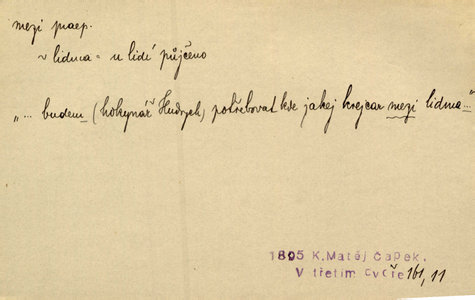 mezi praep.
~ lidma = u lidí půjčeno
„... budem (hokynář Hudrych) potřebovat kde jakej krejcar mezi lidma..."
1895 K.Matěj Čapek,
V třetím dvoře 161, 11